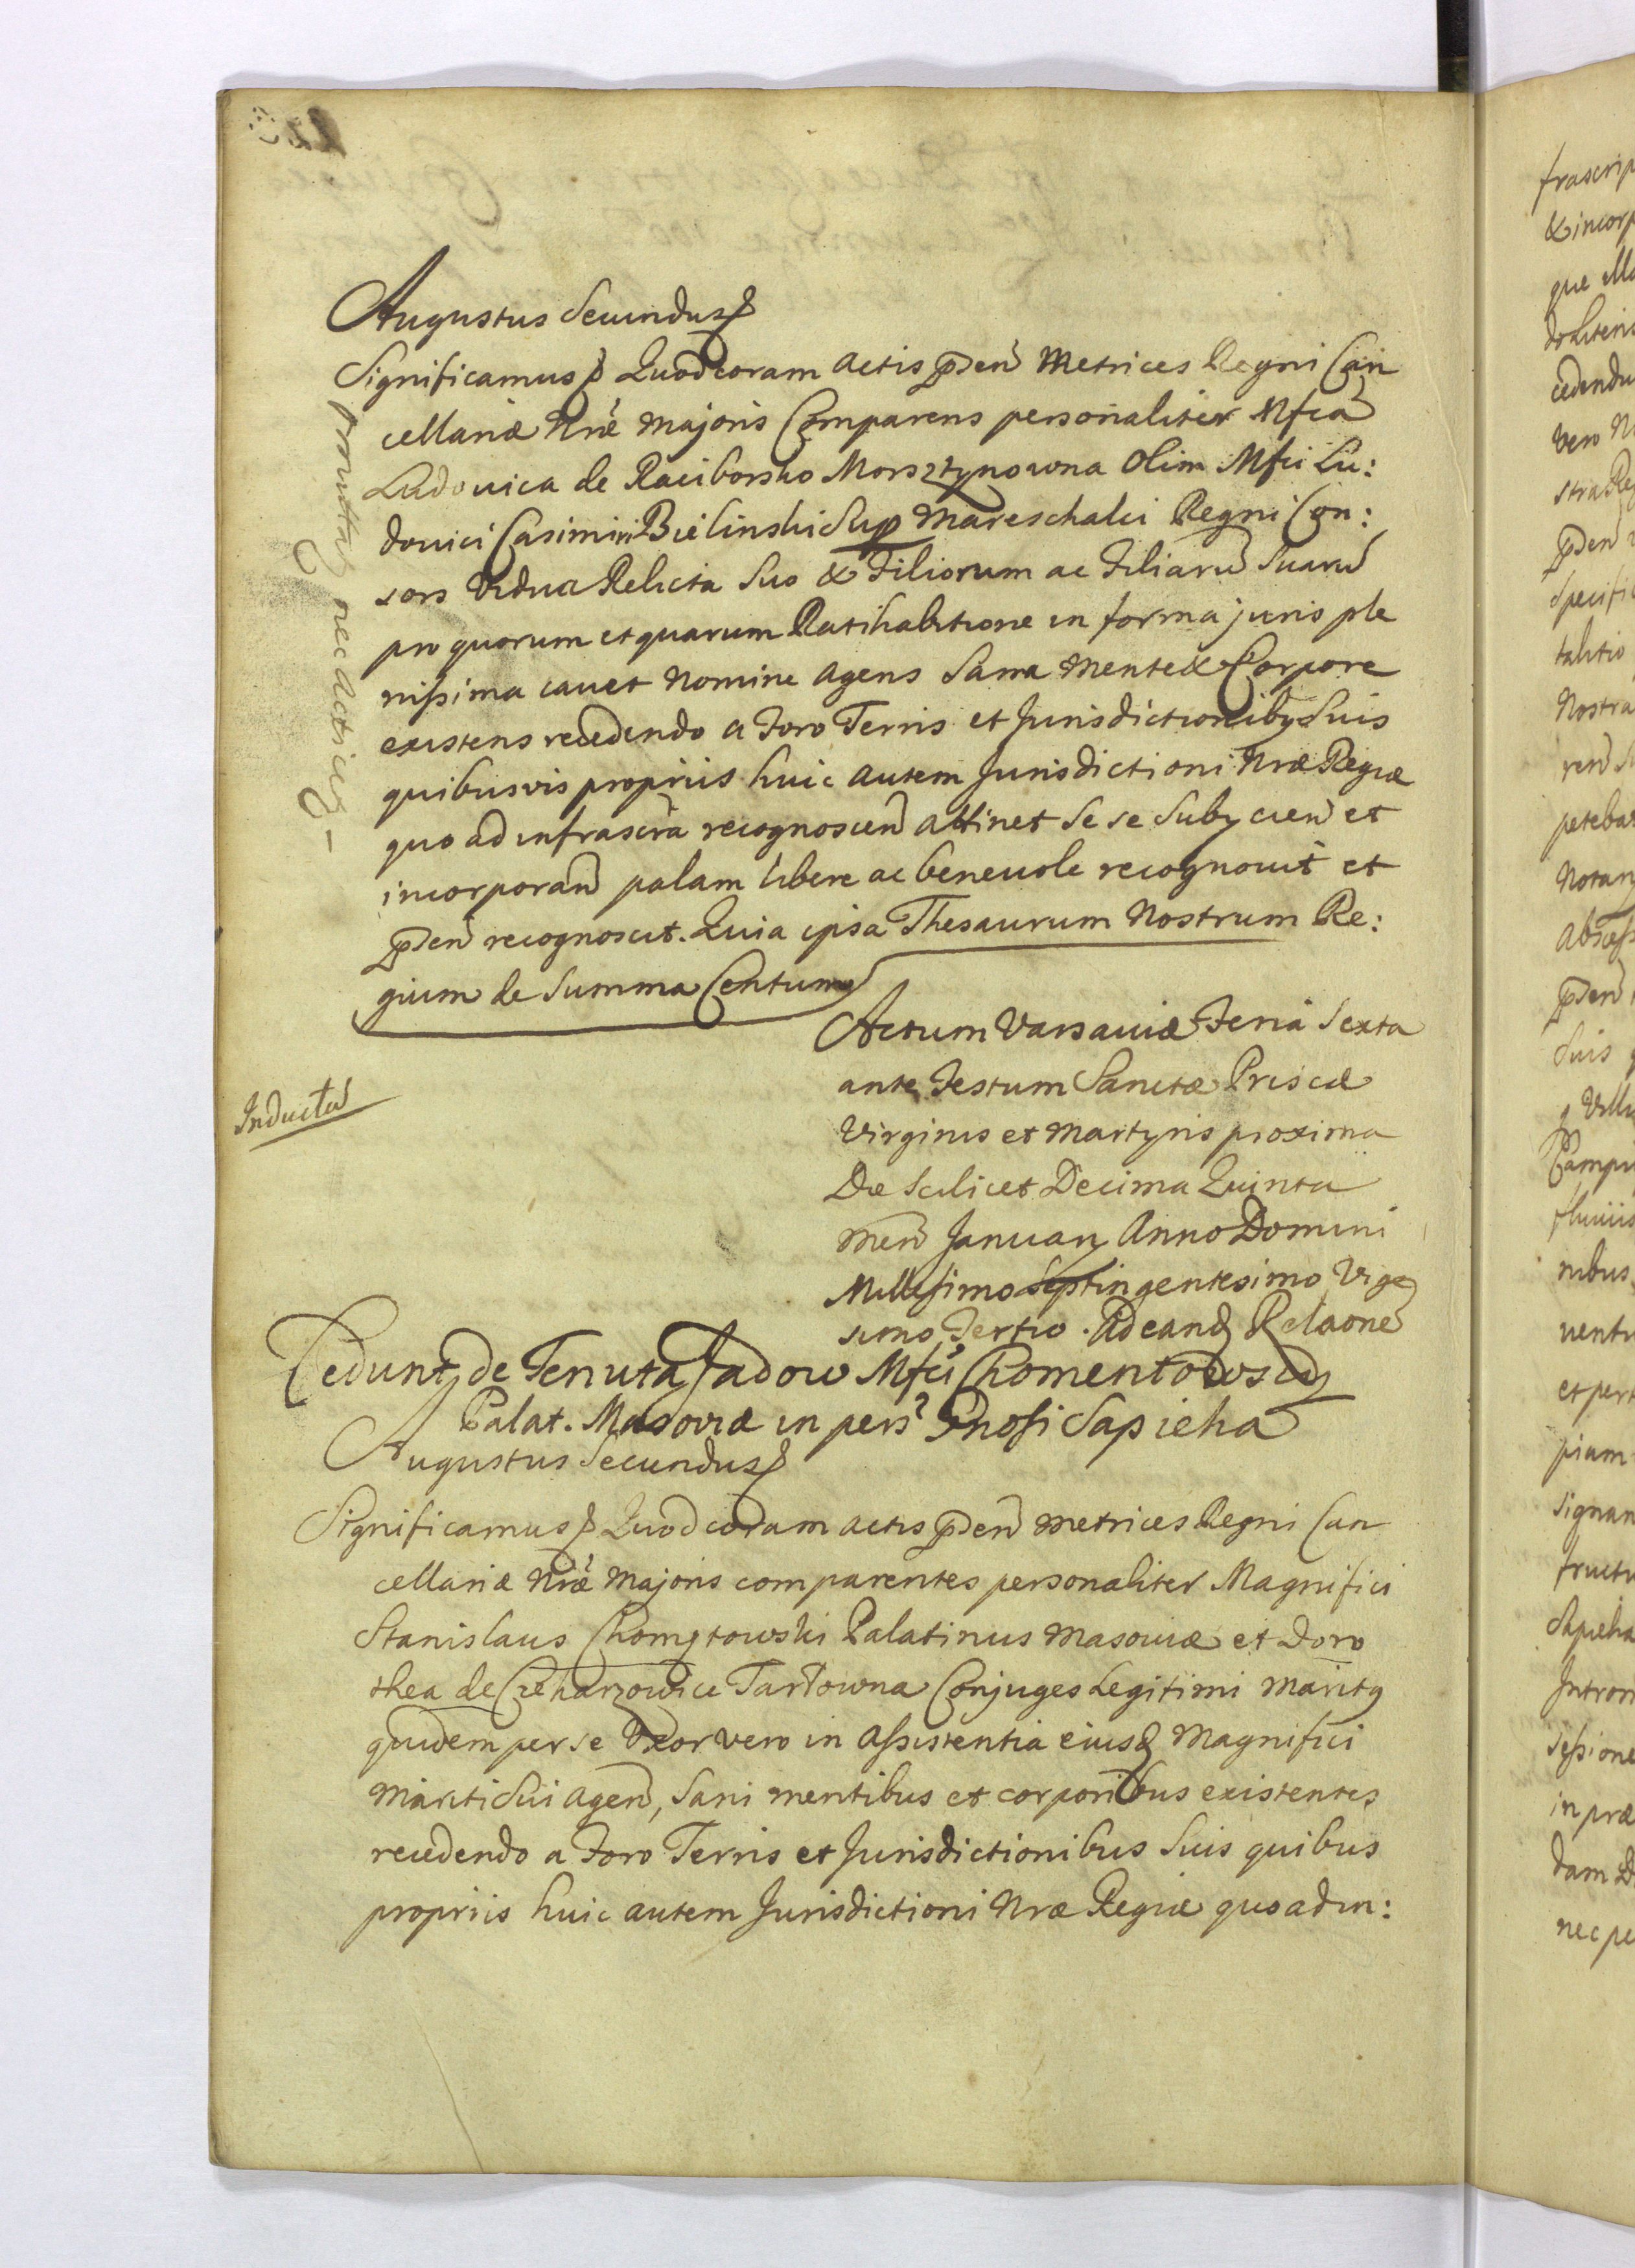 Augustus Secundus
Significamus Quod coram Actis pden Metrices Regni Can
cellariæ Nræ Majoris Comparens personaliter Mfca
Ludovica de Raciborsko Morsztynowna Olim Mfci Lu:
dovici Casimiri Bielinski Sup Mareschalci Regni Con:
sors Vidua Relicta Suo & Filiorum ac Filiarū Suarū
pro quorum et quarum Ratihabitione in forma juris ple
nissima cavet Nomine Agens Sana Mente & Corpore
existens recedendo a Foro Terris et Jurisdictioniby Suis
quibusvis propriis huic autem Jurisdictioni Nræ Regiæ
quo ad infrascra recognoscen attinet Se se Subycien et
incorporan palam libere ac benevole recognovit et
pden recognoscit. Quia ipsa Thesaurum Nostrum Re:
gium de Summa Centum
permittas nec actricis
Actum Varsaviæ Feria Sexta
ante Festum Sanctæ Priscæ
Virginis et Martyris proxima
Die Scilicet Decima Quinta
Men January Anno Domini
Millesimo Septingentesimo Vige
simo Tertio. Ad eand Relaone
Inducta
Cedunt de Tenuta Jadow Mfci Chomentowscy
Palat. Masoviæ in pers Gnosi Sapieha
Augustus Secundus
Significamus Quod coram actis pden Metrices Regni Can
cellariæ Nræ Majoris comparentes personaliter Magnifici
Stanislaus Chomętowski Palatinus Masoviæ et Doro
thea de Czekarzowice Tarłowna Conjuges Legitimi Marity
quidem per se Uxor vero in Assistentia eiusd Magnifici
Mariti Sui agen, Sani mentibus et corporibus existentes
recedendo a Foro Terris et Jurisdictionibus Suis quibus
propriis huic autem Jurisdictioni Nræ Regiæ quo ad in: